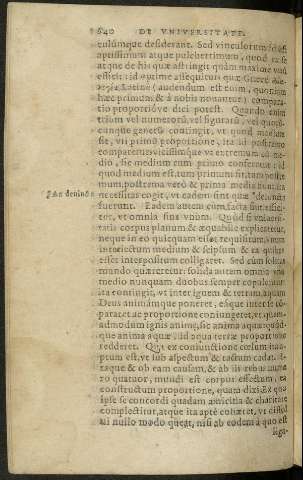 640 DE VNIVERSITATE.
culúmque desiderant. Sed vinculorum id est
aptissimum atque pulcherrimum, quod ex se
atque de his quæ astringit quàm maximè vnũ
efficit: id optimè assequitur quæ Græcè
Latinè (audendum est enim, quoniam
hæc primùm à nobis nouantur) compara-
tio proportióve dici potest. Quando enim
trium vel numerorũ, vel figurarũ, vel quorũ-
cunque generũ contingit, vt quod medium
sit, vti primũ proportione, ita id postremo
comparetur: vicissimque vt extremum cũ me-
dio, sic medium cum primo conferatur: id
quod medium est, tum primum fit, tam posti-
mum, postrema verò & prima media
Iam deuincta necessitas cogit, vt eadem sint quæ *deiuncta
fuerunt. Eadem autem cùm facta sint, effici-
tur, vt omnia sint vnum. Quòd si vniuersi-
tatis corpus planum & æquabile explicaretur,
neque in eo quicquam esset requisitum, vnum
interiectum medium & seipsum & ea quibus
esset interpositum colligaret. Sed cùm solidus
mundo quæreretur: solida autem omnia vno
medio nunquam duobus semper copulantur:
ita contingit, vt inter ignem & terram aquam
Deus animámque poneret, eáque inter se cõ-
pararet ac proportione coniungeret, vt quem-
admodum ignis animæ, sic anima aquæ, quód-
que anima aquæ, id aqua terræ proportione
redderet. Qua ex coniunctione cœlum ita a-
ptum est, vt sub aspectum & tactum cadat. I-
taque & ob eam causam, & ab iis rebus nume-
ro quatuor, mundi est corpus effectum, ea
constructum proportione, quam dixi. Ex quo
ipse se concordi quadam amicitia & charitate
complectitur, atque ita aptè cohæret, vt dissol-
ui nullo modo queat, nisi ab eodem à quo est
liga-